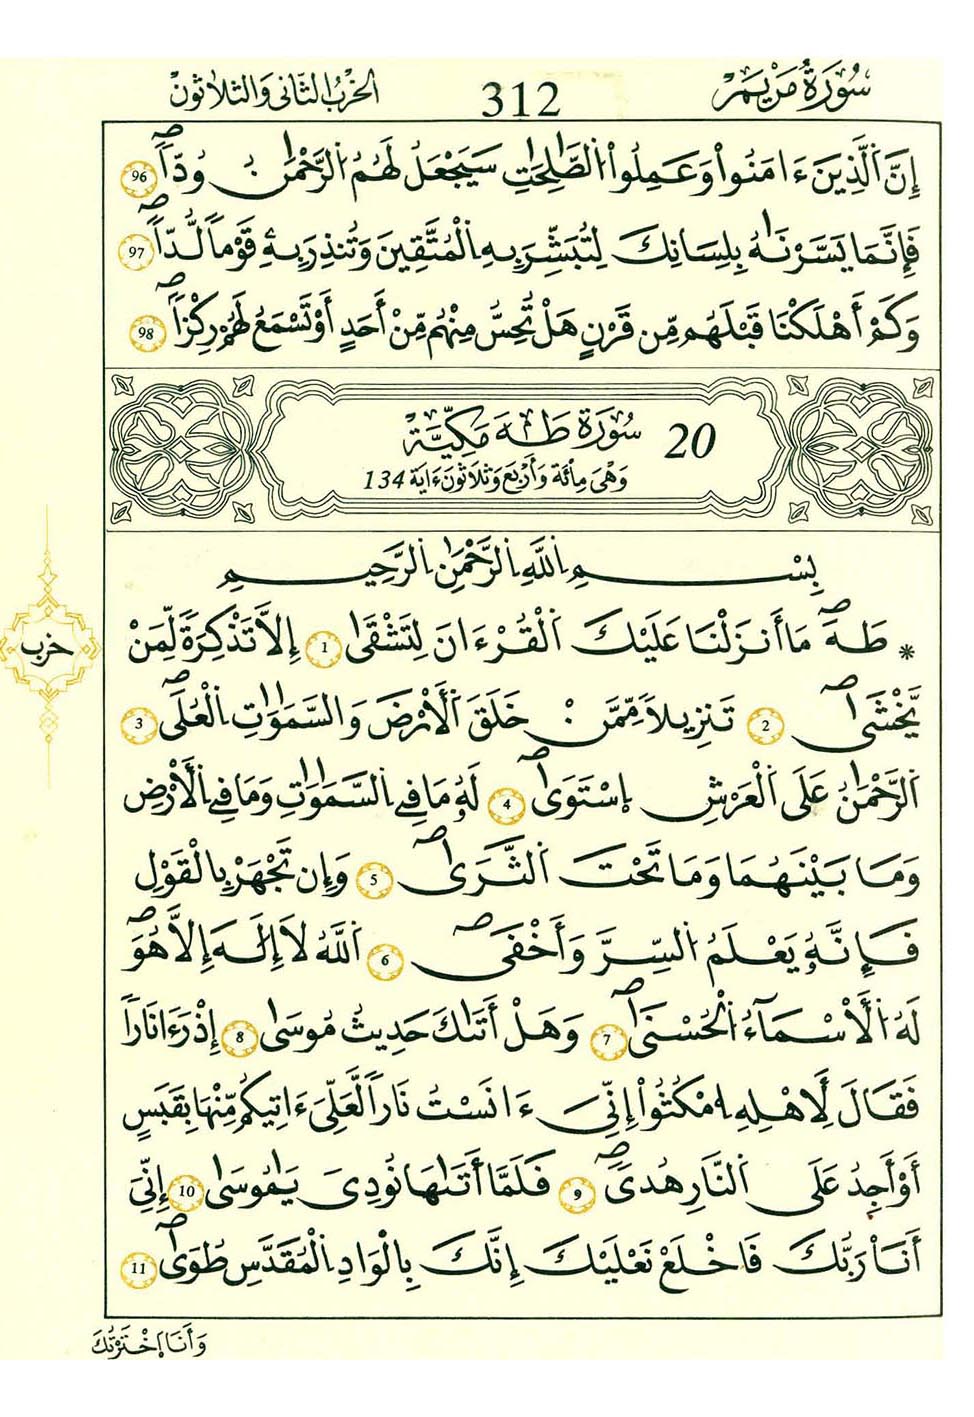 سُورَةُ مَرْيَمَ 312 الحِزْبُ الثَّانِى وَالثَّلاَثُونَ
إِنَّ اَ۬لذِينَ ءَامَنُواْ وَعَمِلُواْ اُ۬لصَّٰلِحَٰتِ سَيَجْعَلُ لَهُمُ اُ۬لرَّحْمَٰنُ وُدّاٗۖ 96
فَإِنَّمَا يَسَّرْنَٰهُ بِلِسَانِكَ لِتُبَشِّرَ بِهِ اِ۬لْمُتَّقِينَ وَتُنذِرَ بِهِۦ قَوْماٗ لُّدّاٗۖ 97
وَكَمْ أَهْلَكْنَا قَبْلَهُم مِّن قَرْنٍ هَلْ تُحِسُّ مِنْهُم مِّنْ أَحَدٍ أَوْ تَسْمَعُ لَهُمْ رِكْزاٗۖ 98
20 سُورَةُ طَهَ مَكِّيَّة
وَهْىَ مِائَة وَأَرْبَع وَثَلاَثُونَ ءَايَة 134
بِسْمِ اِ۬للَّهِ اِ۬لرَّحْمَٰنِ اِ۬لرَّحِيمِ
حزب
* طَهَۖ مَا أَنزَلْنَا عَلَيْكَ اَ۬لْقُرْءَانَ لِتَشْقَىٰ 1 إِلاَّ تَذْكِرَةٗ لِّمَنْ
يَّخْشَىٰۖ 2 تَنزِيلاٗ مِّمَّنْ خَلَقَ اَ۬لْأَرْضَ وَالسَّمَٰوَٰتِ اِ۬لْعُلَىۖ 3
اَ۬لرَّحْمَٰنُ عَلَى اَ۬لْعَرْشِ اِ۪سْتَوَىٰۖ 4 لَهُۥ مَا فِے اِ۬لسَّمَٰوَٰتِ وَمَا فِے اِ۬لْأَرْضِ
وَمَا بَيْنَهُمَا وَمَا تَحْتَ اَ۬لثَّرَىٰۖ 5 وَإِن تَجْهَرْ بِالْقَوْلِ
فَإِنَّهُۥ يَعْلَمُ اُ۬لسِّرَّ وَأَخْفَىۖ 6 اَ۬للَّهُ لاَ إِلَٰهَ إِلاَّ هُوَۖ
لَهُ اُ۬لْأَسْمَآءُ اُ۬لْحُسْنَىٰۖ 7 وَهَلْ أَتَىٰكَ حَدِيثُ مُوسَىٰ 8 إِذْ رَءَا نَاراٗ
فَقَالَ لِأَهْلِهِ اِ۟مْكُثُواْ إِنِّيَ ءَانَسْتُ نَاراٗ لَّعَلِّيَ ءَاتِيكُم مِّنْهَا بِقَبَسٍ
أَوْ أَجِدُ عَلَى اَ۬لنَّارِ هُدىٗۖ 9 فَلَمَّا أَتَىٰهَا نُودِىَ يَٰمُوسَىٰ 10 إِنِّيَ
أَنَا رَبُّكَ فَاخْلَعْ نَعْلَيْكَ إِنَّكَ بِالْوَادِ اِ۬لْمُقَدَّسِ طُوَىٰۖ 11
وَأَنَا اَ۪خْتَرْتُكَ